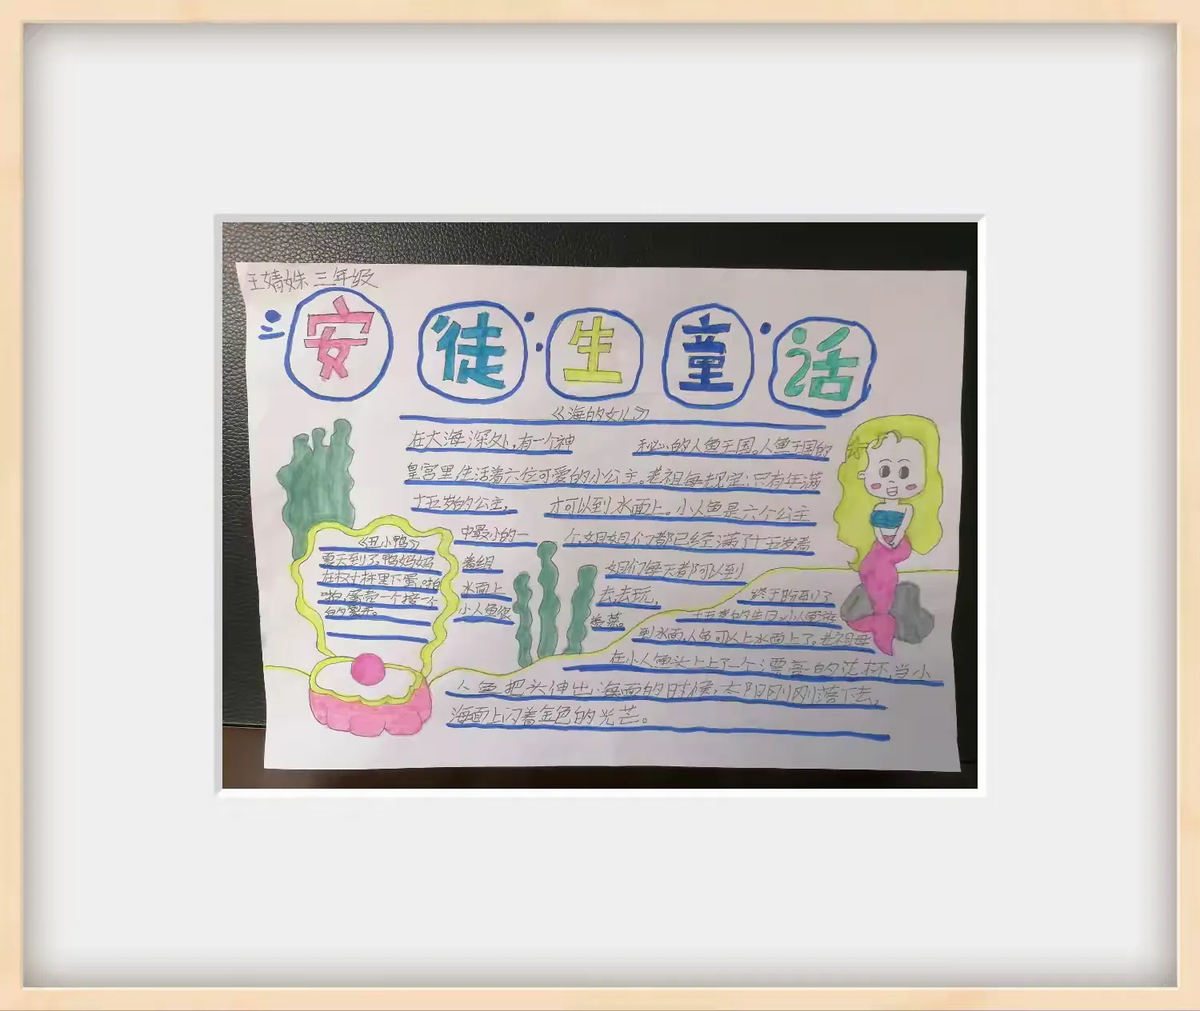 王婧姝 三年级
安徒生童话
《海的女儿》
在大海深处,有一个神秘的人鱼王国。人鱼王国的
皇宫里生活着六位可爱的小公主。老祖母规定:只有年满
十五岁的公主,才可以到水面上。小人鱼是六个公主
中最小的一个,姐姐们都已经满了十五岁看
着姐姐们每天都可以到
水面上去,去玩,
小人鱼很羡慕。
终于盼到了
十五岁的生日,小人鱼游
到水面,人鱼可以上水面上了。老祖母
在小人鱼头上上了一个漂亮的花环,当小
人鱼把头伸出海面的时候,太阳刚刚落下去,
海面上闪着金色的光芒。
《丑小鸭》
夏天到了,鸭妈妈
在树林里下蛋,啪
啪,蛋壳一个接一个
的裂开。